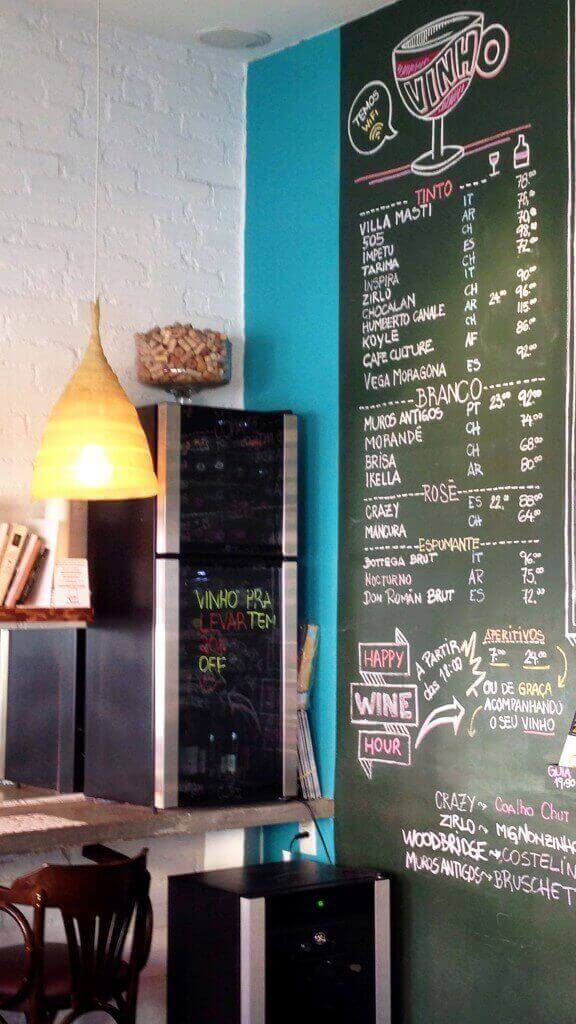 VINHO
TEMOS
WIFI
TINTO
VILLA MASTI IT 78.00
505 AR 75.00
IMPETU CH 70.00
TARIMA ES 98.00
INSPIRA CH 72.00
ZIRLO IT
CHOCALAN CH 90.00
HUMBERTO CANALE AR 24.00 96.00
KOYLE CH 115.00
CAFE CULTURE AF 86.00
VEGA MORAGONA ES 92.00
BRANCO
MUROS ANTIGOS PT 23.00 92.00
MORANDÉ CH 74.00
BRISA CH 68.00
IKELLA AR 80.00
ROSÊ
CRAZY ES 22.00 88.00
MANCURA CH 64.00
ESPUMANTE
BOTTEGA BRUT IT 96.00
NOCTURNO AR 75.00
DON ROMÁN BRUT ES 72.00
HAPPY
WINE
HOUR
A PARTIR
DAS 18:00
APERITIVOS
7.00 24.00
OU DE GRAÇA
ACOMPANHANDO
O SEU VINHO
GUIA
19.90
CRAZY COALHO CHUT
ZIRLO MIGNONZINHO
WOODBRIDGE COSTELIN
MUROS ANTIGOS BRUSCHET
VINHO PRA
LEVAR TEM
OFF